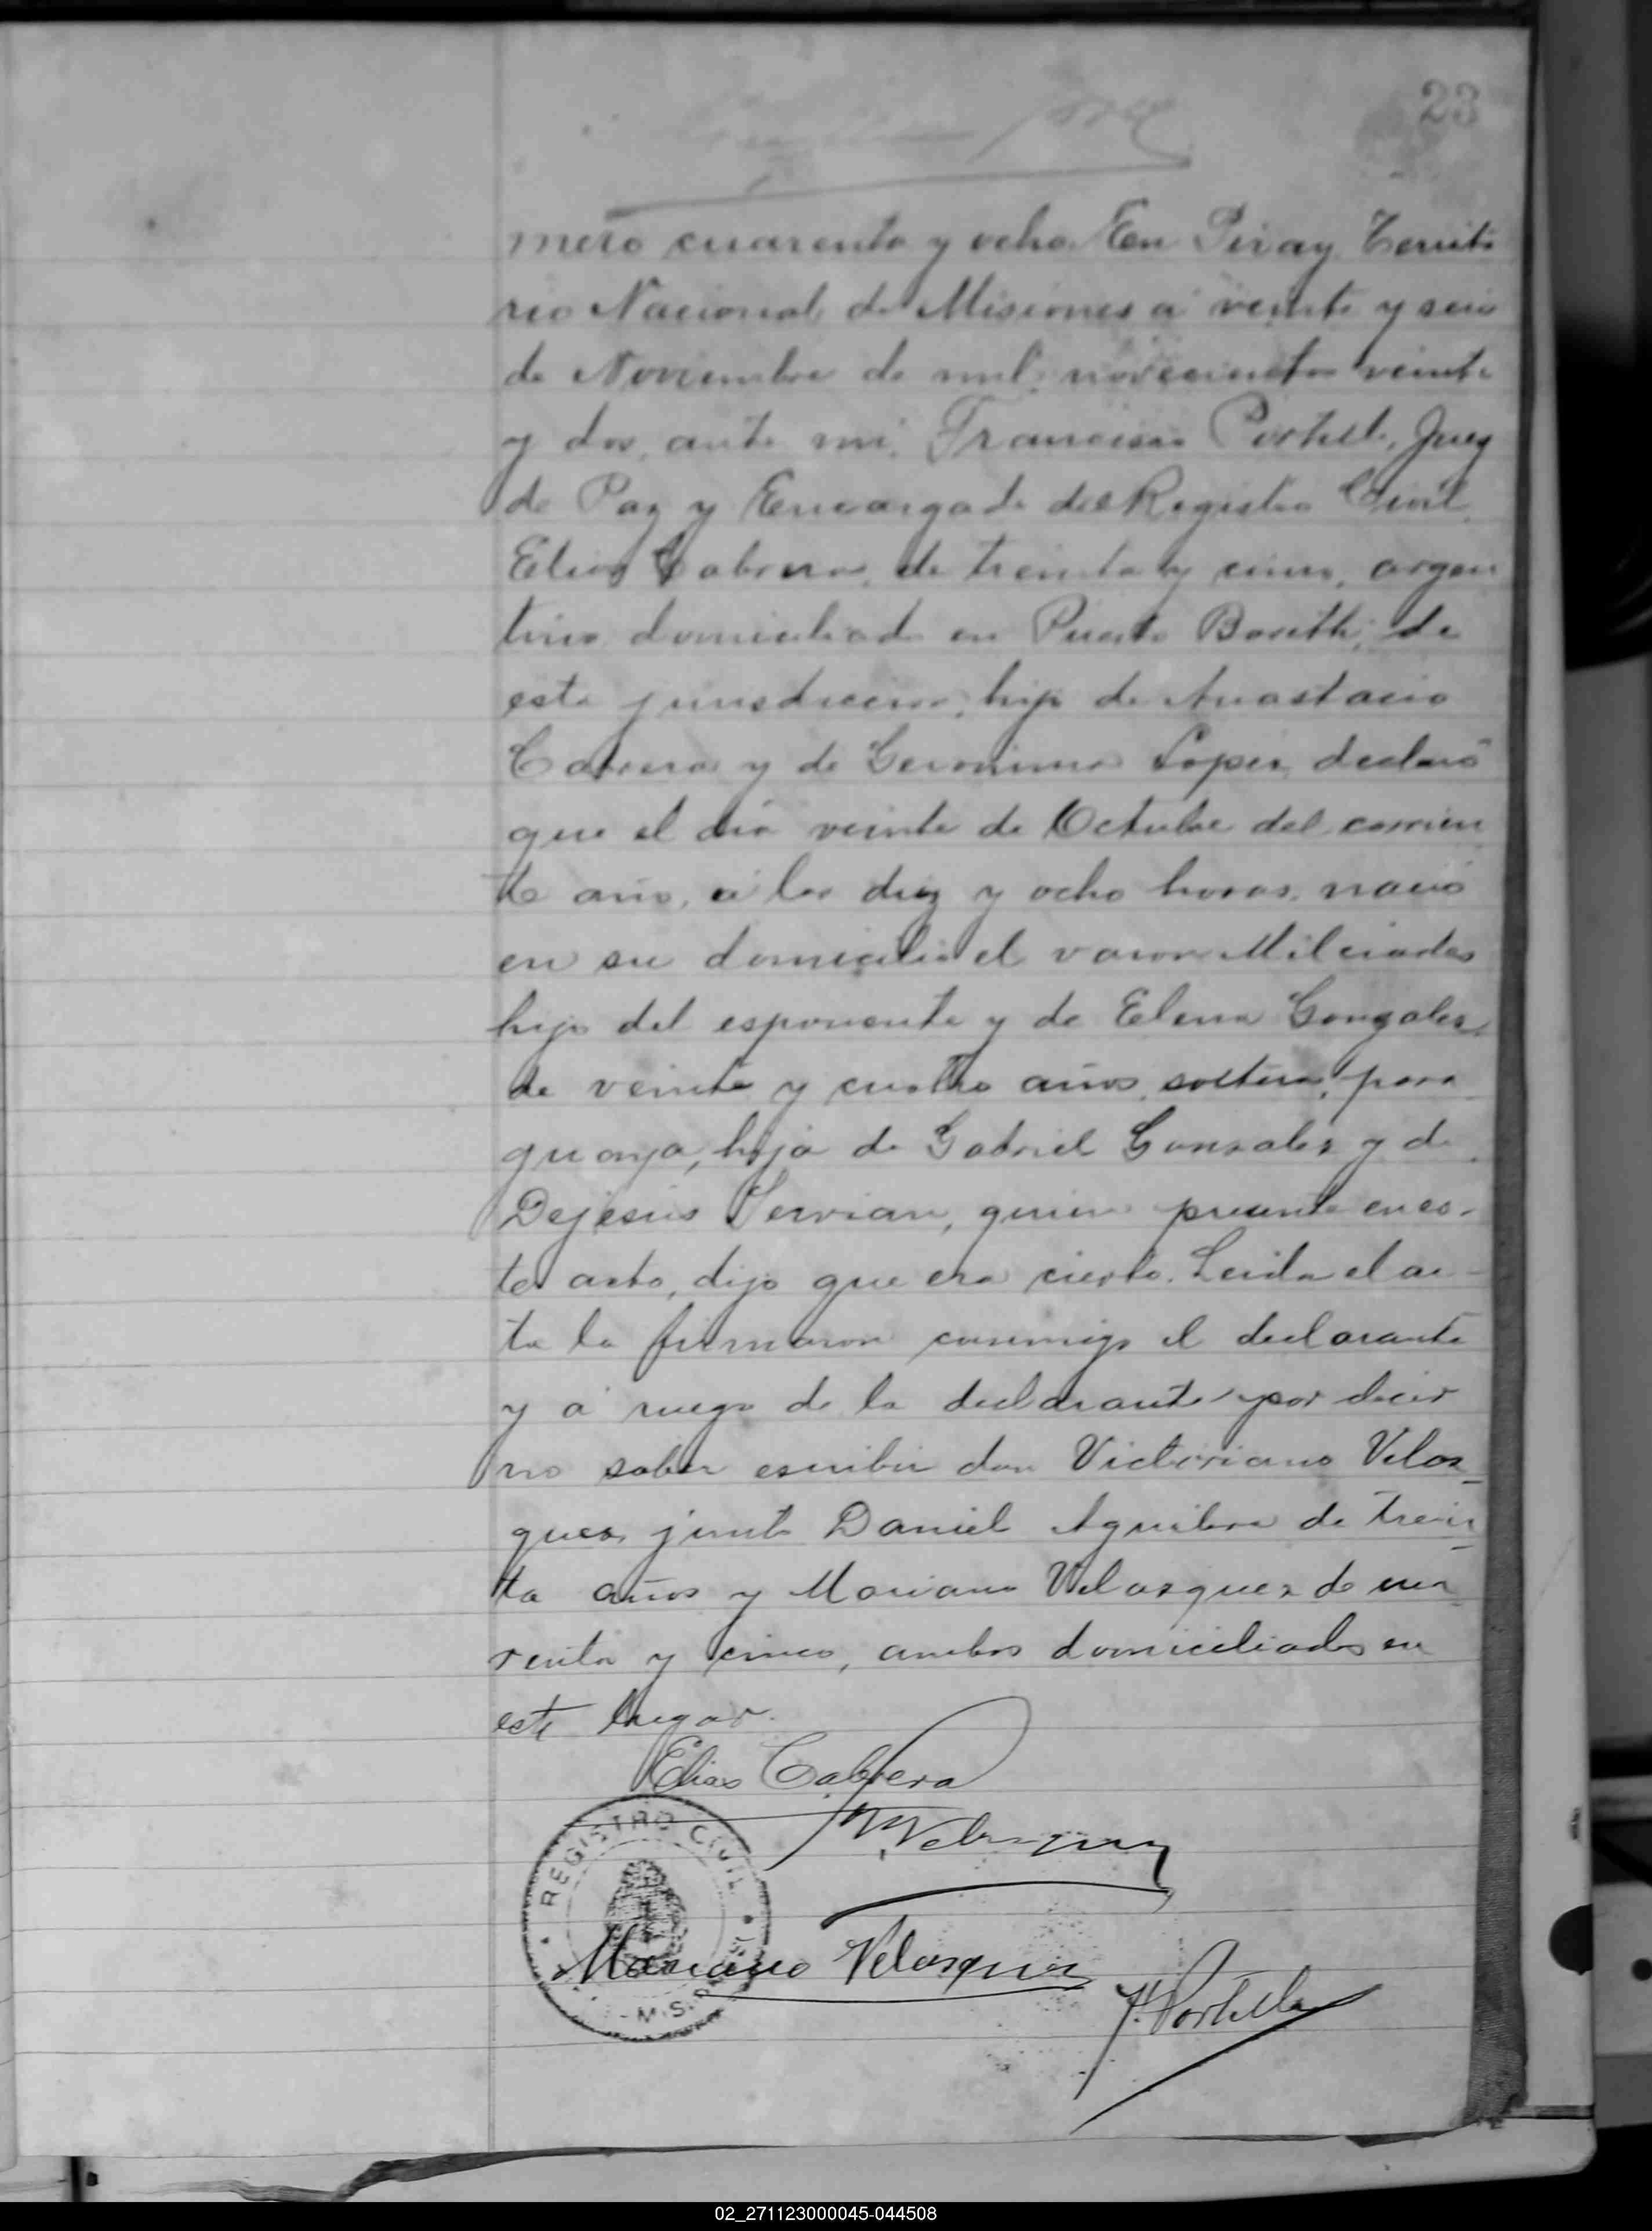 23
mero cuarenta y ocho En Piray Territo
rio Nacional de Misiones a veinte y seis
de Noviembre de mil novecientos veinte
y dos, ante mi, Francisco Portell, Juez
de Paz y Encargado del Registro Civil
Elias Cabrera, de treinta y cinco, argen
tino domiciliado en Puerto de
esta jurisdiccion, hijo de Anastacio
Cabrera y de Geronima Lopez, declaró
que el dia veinte de Octubre del corrien
te año, a las diez y ocho horas, nació
en su domicilio el varon Milciades
hijo del esponente y de Elena Gonzalez,
de veinte y cuatro años, soltera, para
guaya, hija de Gabriel Gonzalez y de
Dejesus Servian, quien presente en es-
te acto, dijo que era cierto. Leida el ac-
ta la firmaron conmigo el declarante
y a ruego de la declarante por decir
no saber escribir don Victoriano Velaz_
quez, junto Daniel Aguilera de trein_
ta años y Mariano Velazquez de cua_
renta y cinco, ambos domiciliados en
este lugar.
Elias Cabrera
V Velazquez
REGISTRO CIVIL
Mariano Velasquez
M.S.
F. Portell
02_271123000045-044508